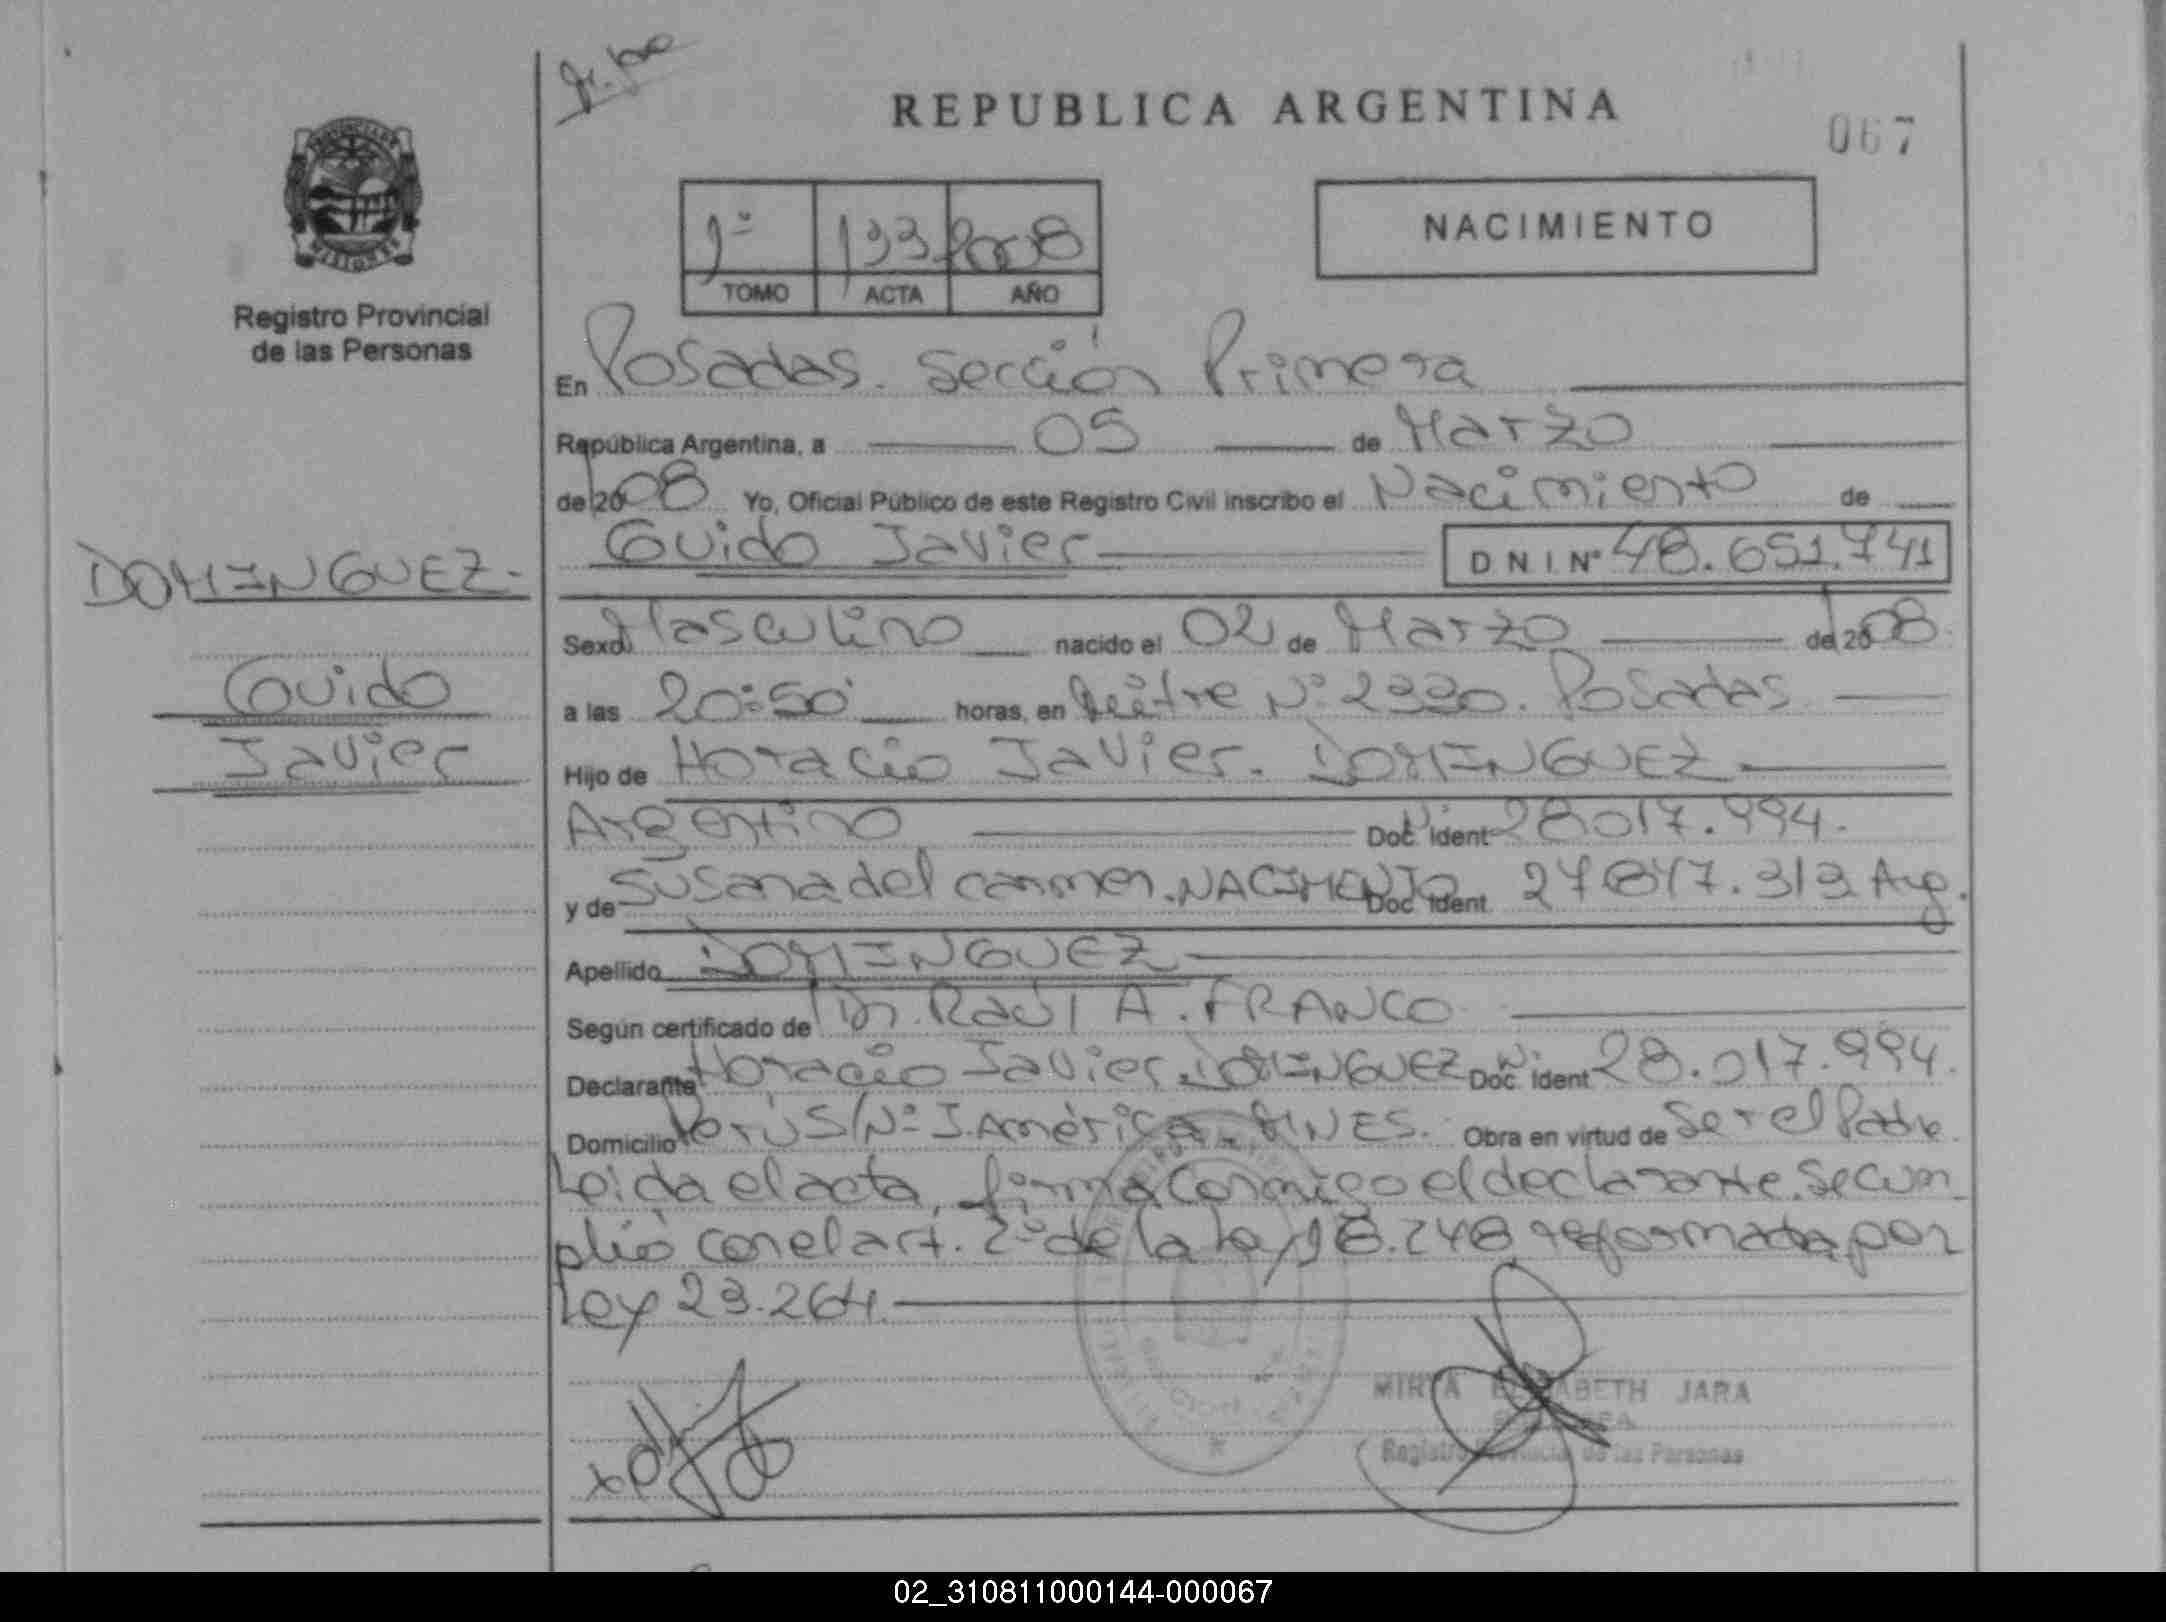 REPUBLICA ARGENTINA
067
PROVINCIA DE
MISIONES
Registro Provincial
de las Personas
1º 133 2008
TOMO ACTA AÑO
NACIMIENTO
En Posadas. Sección Primera
República Argentina, a 05 de Marzo
de 2008 Yo, Oficial Público de este Registro Civil inscribo el Nacimiento de
Guido Javier DNI Nº 48.651.741
DOMINGUEZ.
Guido
Javier
Sexo Masculino nacido el 02 de Marzo de 2008.
a las 20:50 horas, en Mitre Nº 2330. Posadas
Hijo de Horacio Javier. DOMINGUEZ
Argentino Doc. Ident 28017.994.
y de Susana del Carmen. NACIMENTO Doc Ident. 27847.313 Arg.
Apellido DOMINGUEZ
Según certificado de Dr. Raúl A. FRANCO
Declarante Horacio Javier. DOMINGUEZ Doc. Ident 28.017.994.
Domicilio Perú S/Nº J. América. MNES. Obra en virtud de Ser el Padre.
Leida el acta, firma conmigo el declarante. Se cum_
plió con el art. 2º de la ley 18.248 reformada por
Ley 23.264.
MIRTA ELIZABETH JARA
Registro Provincial de las Personas
02_310811000144-000067